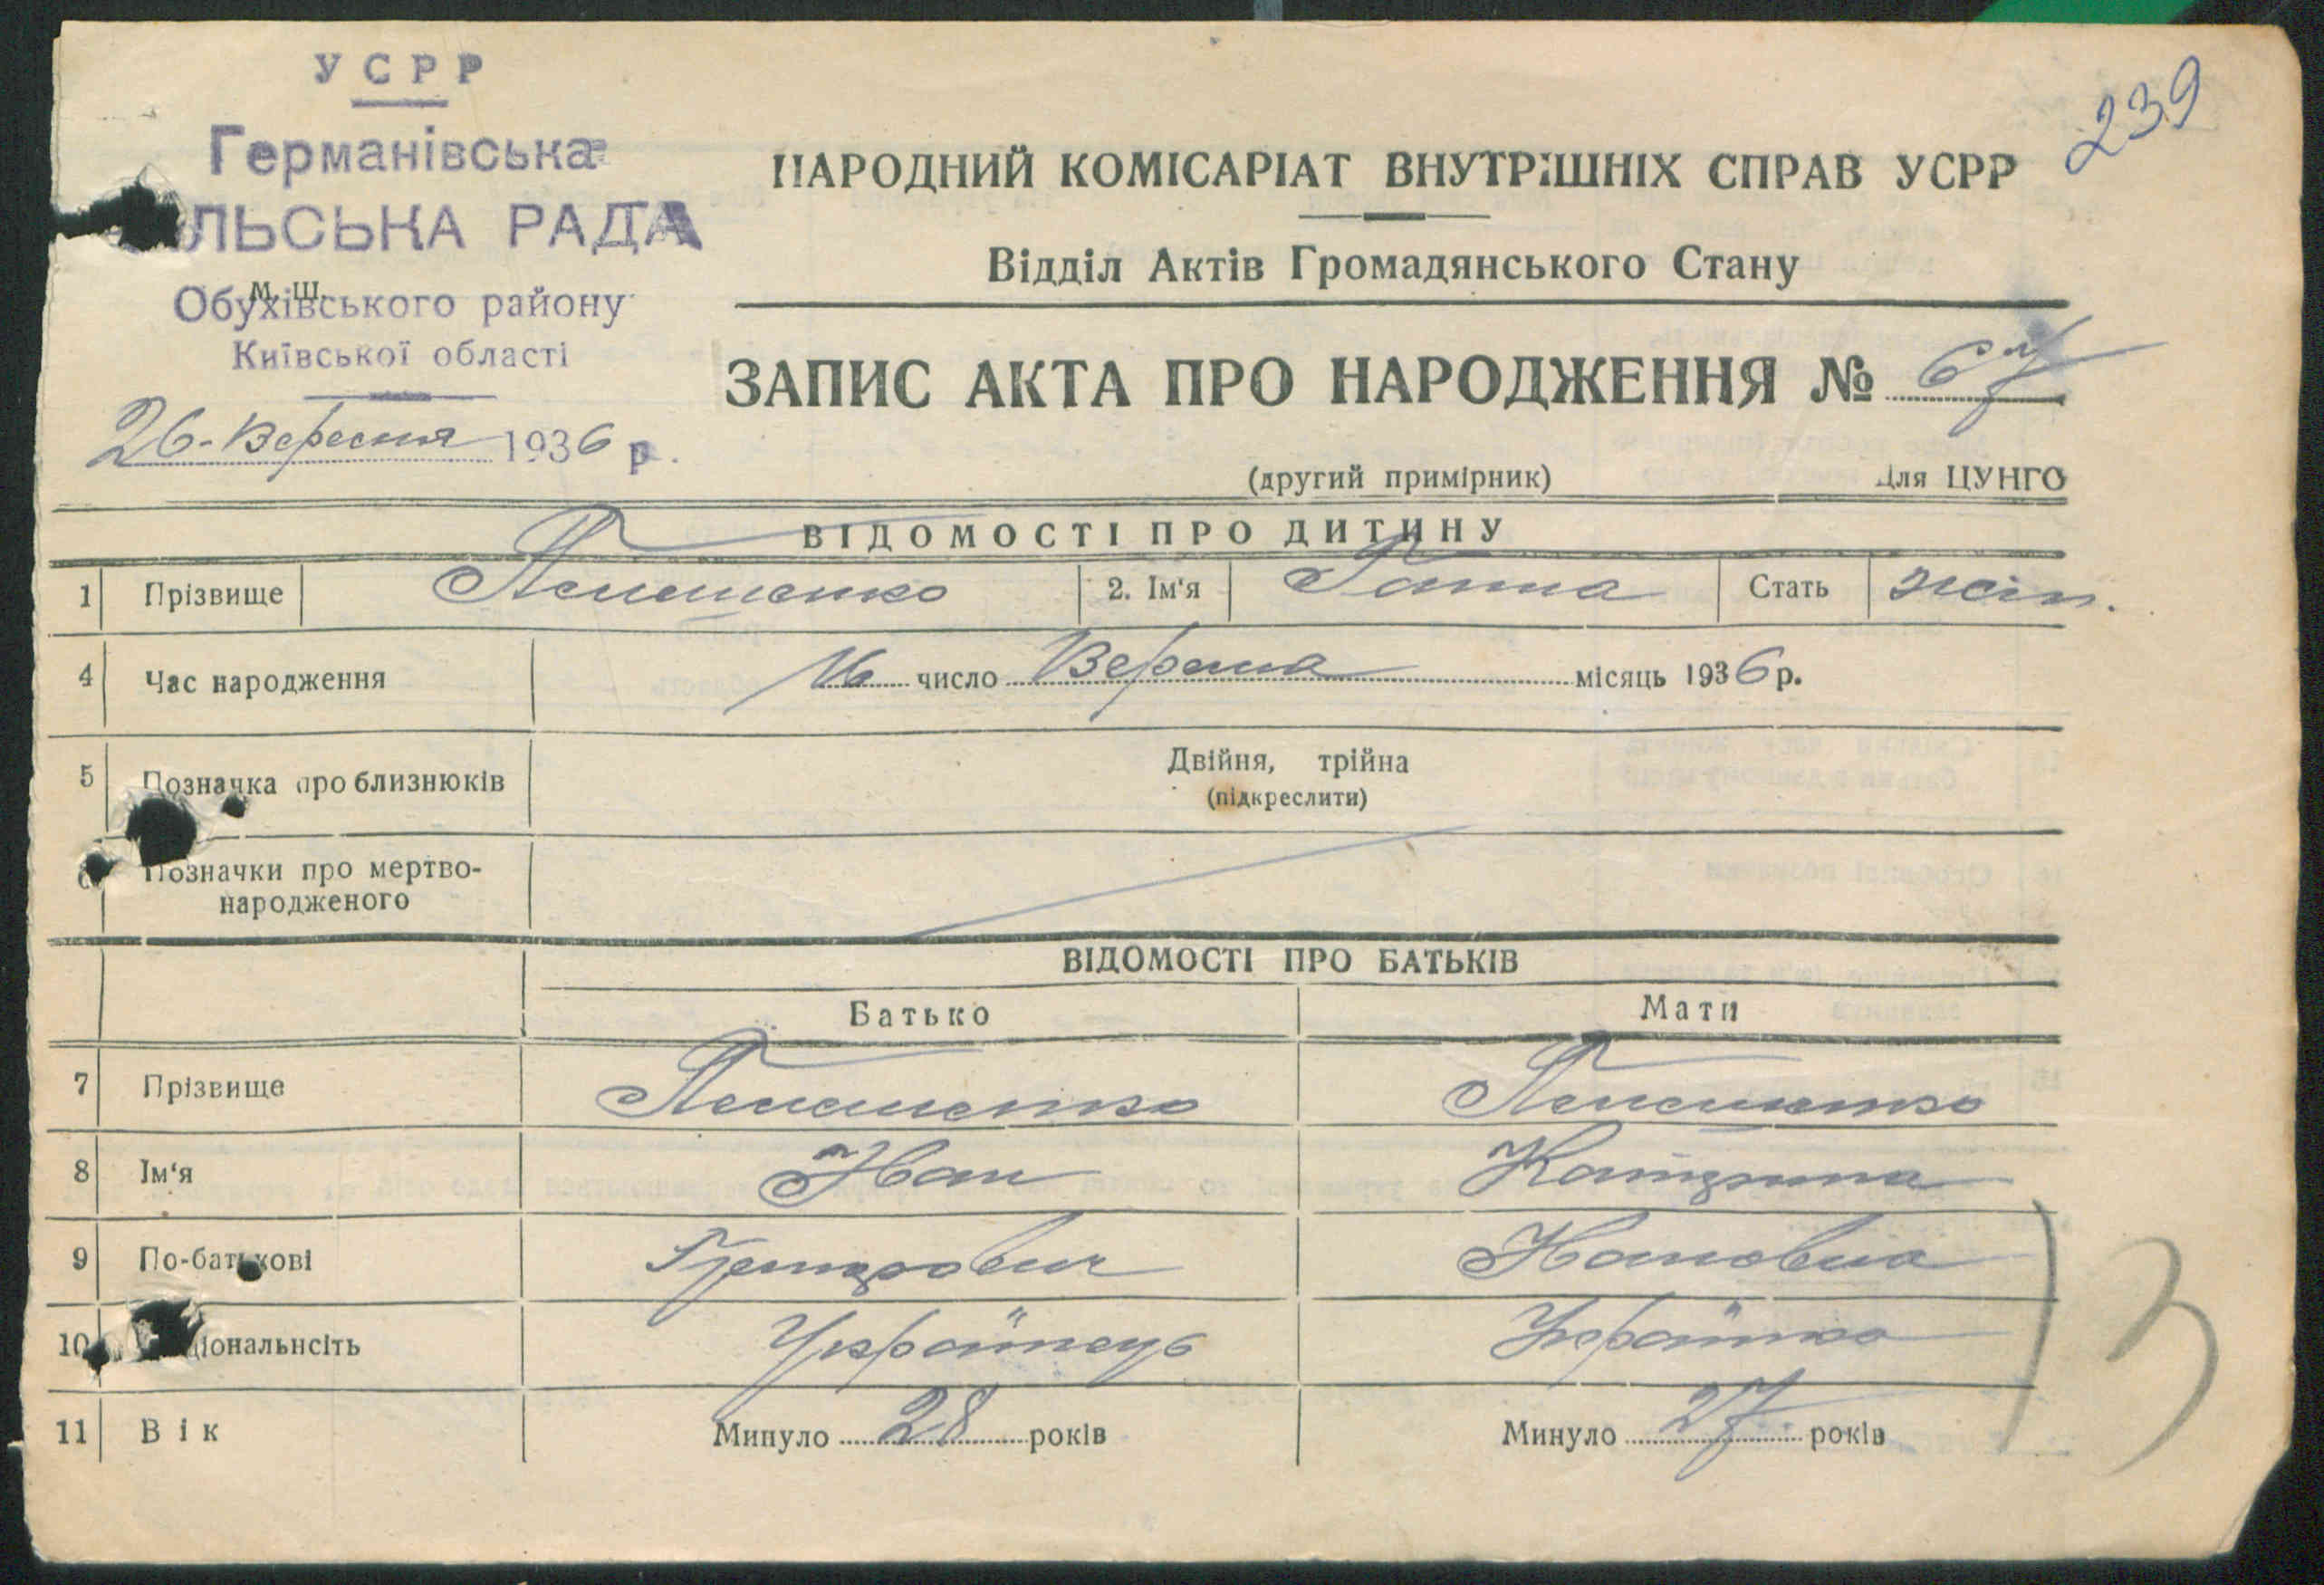 УСРР
239
Германівська
ЛЬСЬКА РАДА
м. ш.
Обухівського району
Київської області
26-Вересня 1936 р.
НАРОДНИЙ КОМІСАРІАТ ВНУТРІШНІХ СПРАВ УСРР
Відділ Актів Громадянського Стану
ЗАПИС АКТА ПРО НАРОДЖЕННЯ № 67
(другий примірник) Для ЦУНГО
ВІДОМОСТІ ПРО ДИТИНУ
1 Прізвище 2. Ім'я Ганна Стать жін.
4 Час народження 16 число Вересня місяць 1936 р.
5 Позначка про близнюків Двійня, трійна
(підкреслити)
6 Позначки про мертво-
народженого
ВІДОМОСТІ ПРО БАТЬКІВ
Батько Мати
7 Прізвище
8 Ім'я Іван Катерина
9 По-батькові Григорович Івановна
10 ціональнсіть Українець Українка
11 Вік Минуло 28 років Минуло 27 років
3